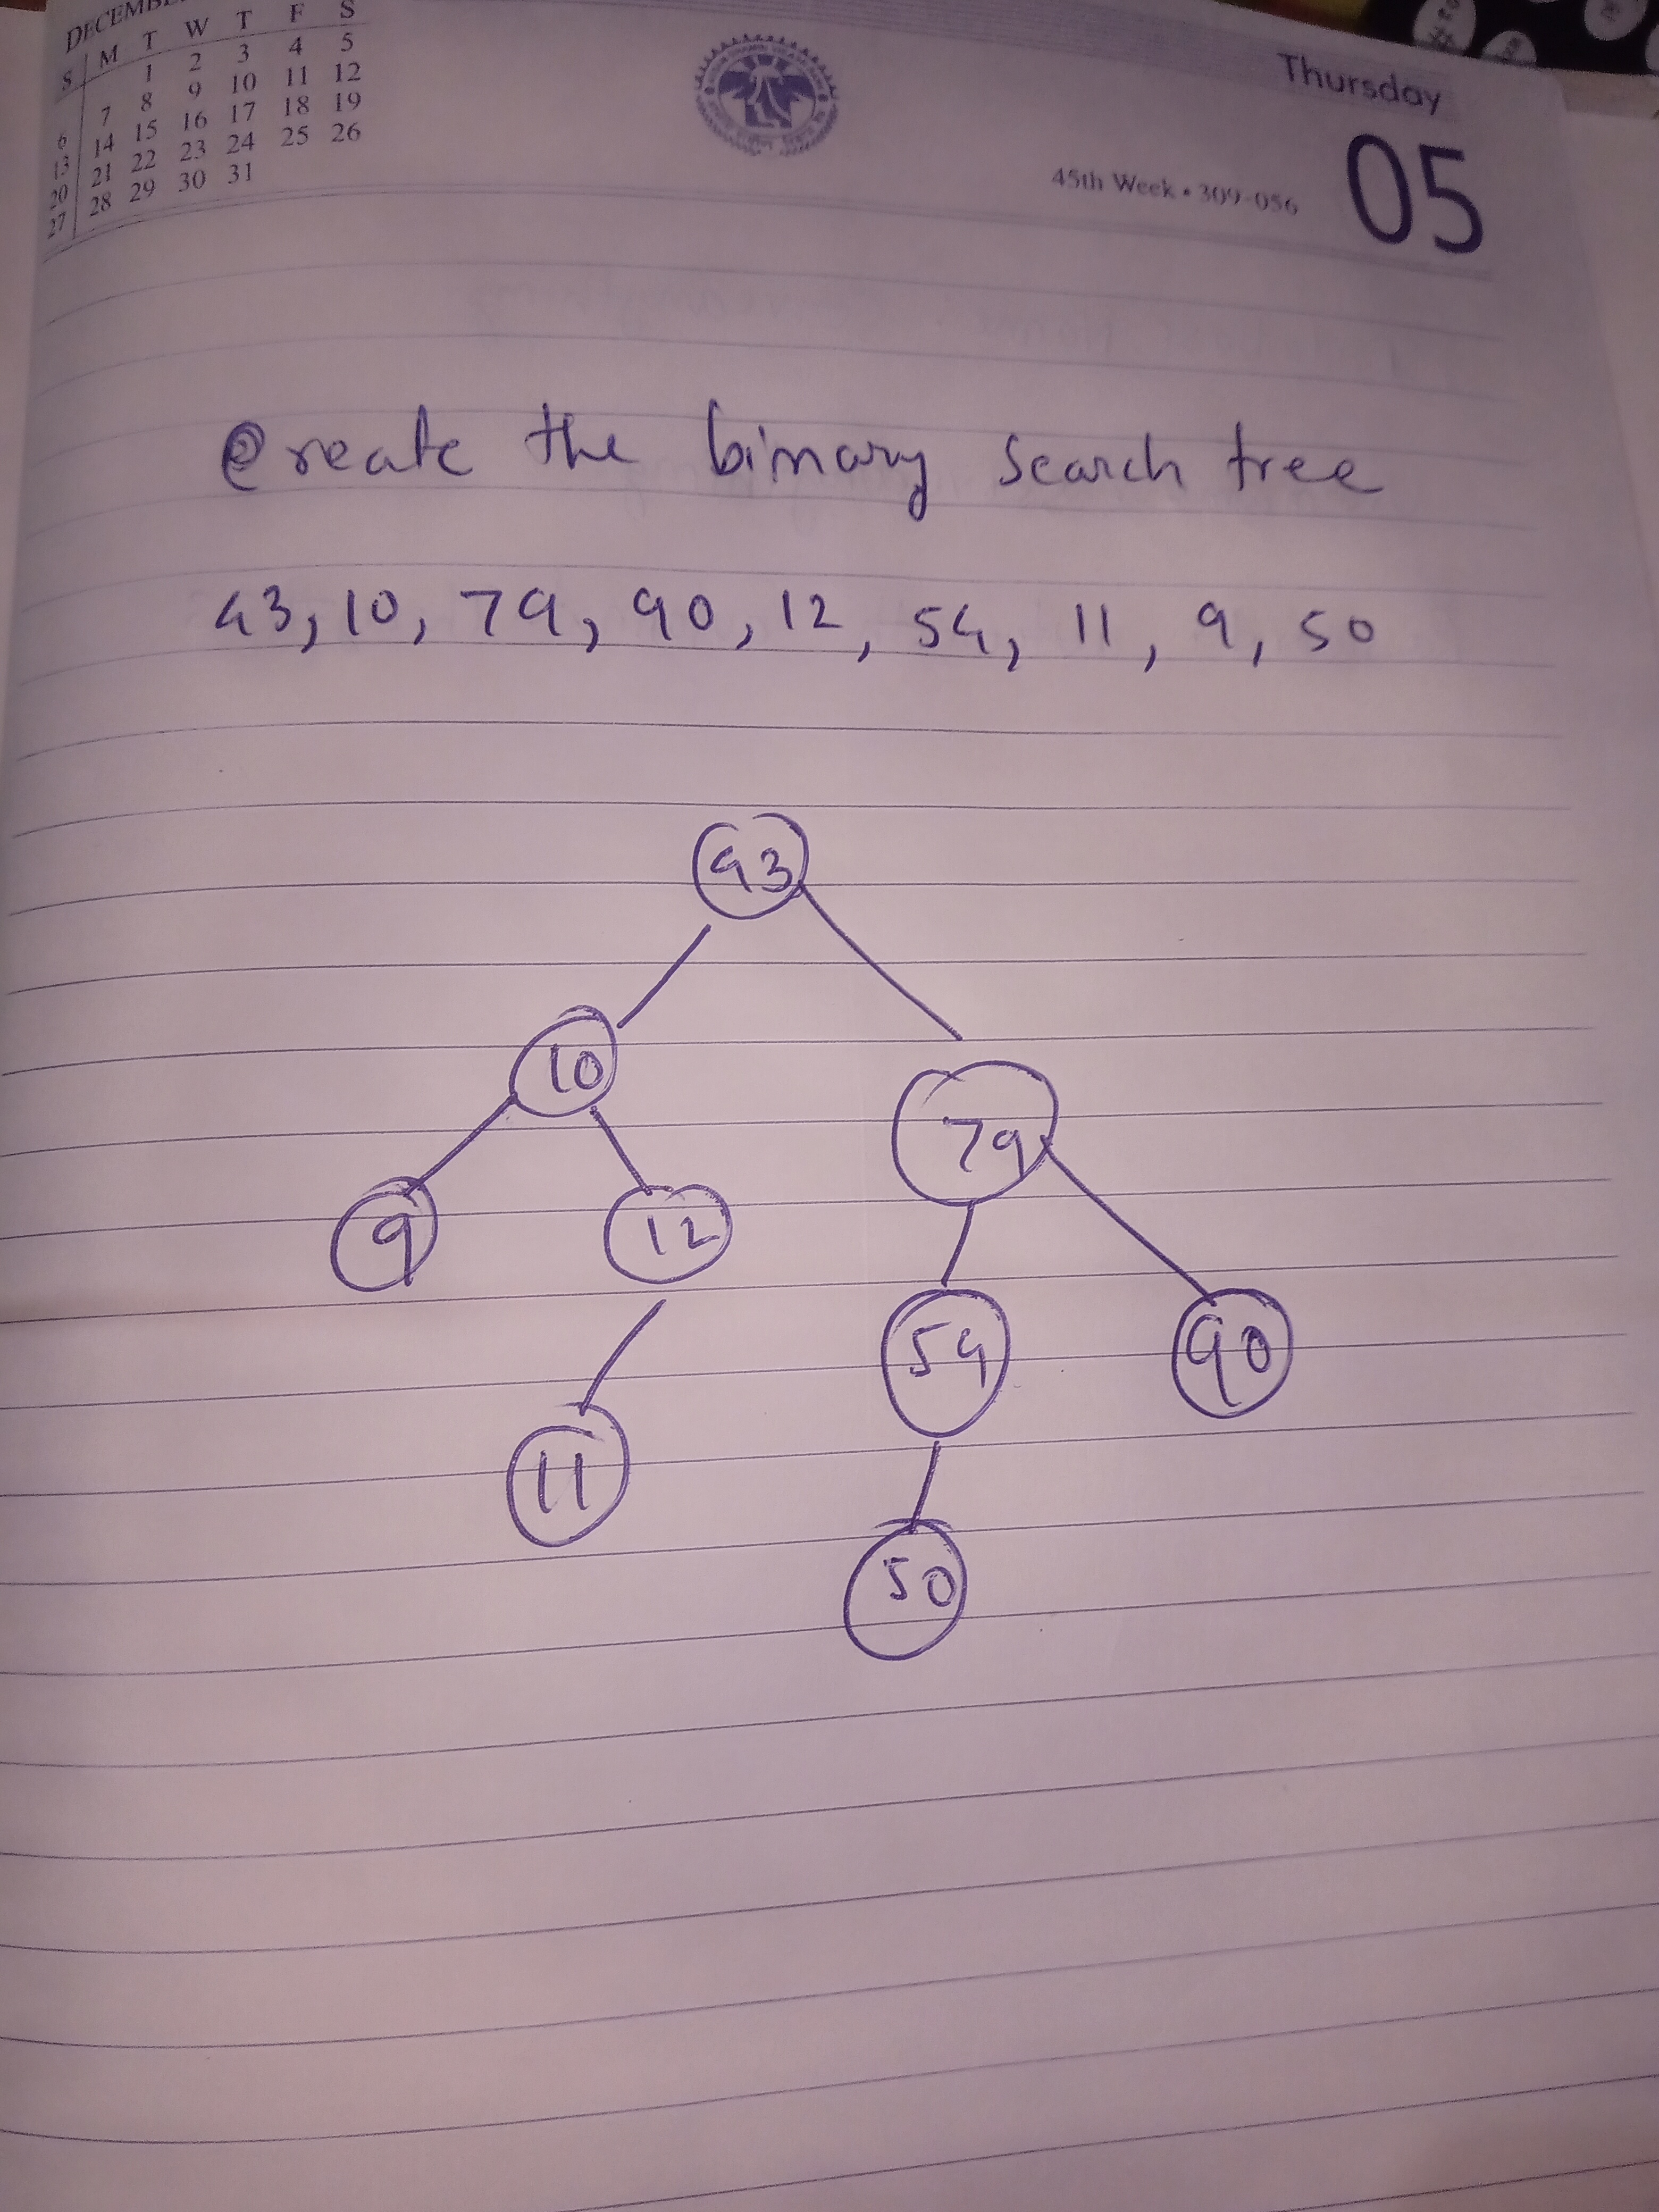 DECEMBE
S M T W T F S
1 2 3 4 5
6 7 8 9 10 11 12
13 14 15 16 17 18 19
20 21 22 23 24 25 26
27 28 29 30 31
Thursday
45th Week • 309-056
05
Create the binary search tree
43, 10, 79, 90, 12, 54, 11, 9, 50
43
10
79
9
12
54
90
11
50